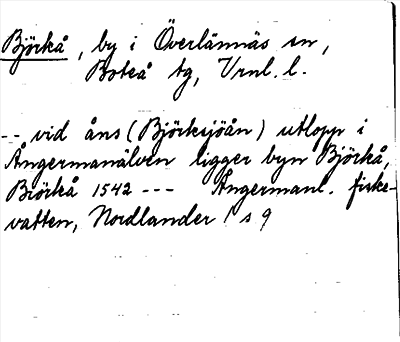 Björkå, by i Överlännäs sn,
Boteå tg, Vrnl. l.
-- vid åns (Björksjöån) utlopp i
Ångermanälven ligger byn Björkå,
Biörkå 1542 --- Ångermanl. fiske-
vatten, Nordlander 1 s 9